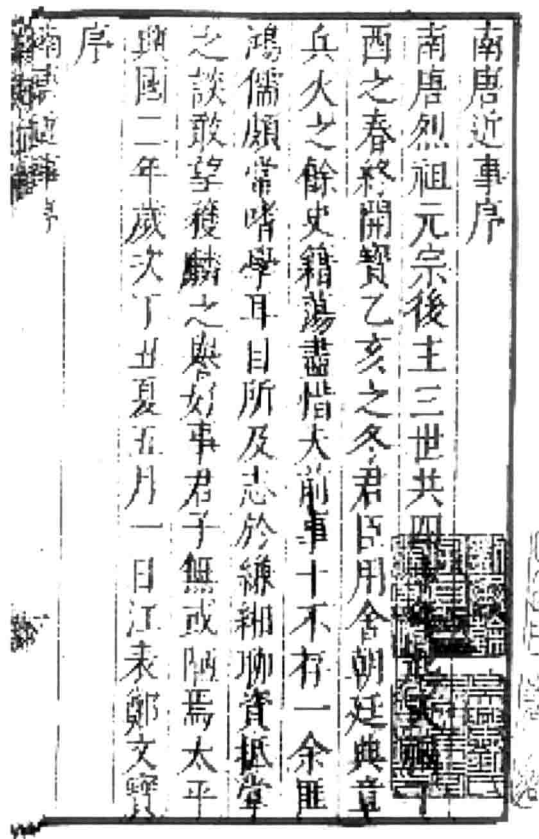 南唐近事序
南唐烈祖元宗後主三世共四
酉之春終開寶乙亥之冬君臣用舍朝廷典章
兵火之餘史籍蕩盡惜夫前事十不存一余匪
鴻儒頗常嗜學耳目所及志於縑緗聊資抵掌
之談敢望獲麟之譽好事君子無或陋焉太平
興國二年歲次丁丑夏五月一日江表鄭文寶
序
南唐近事序